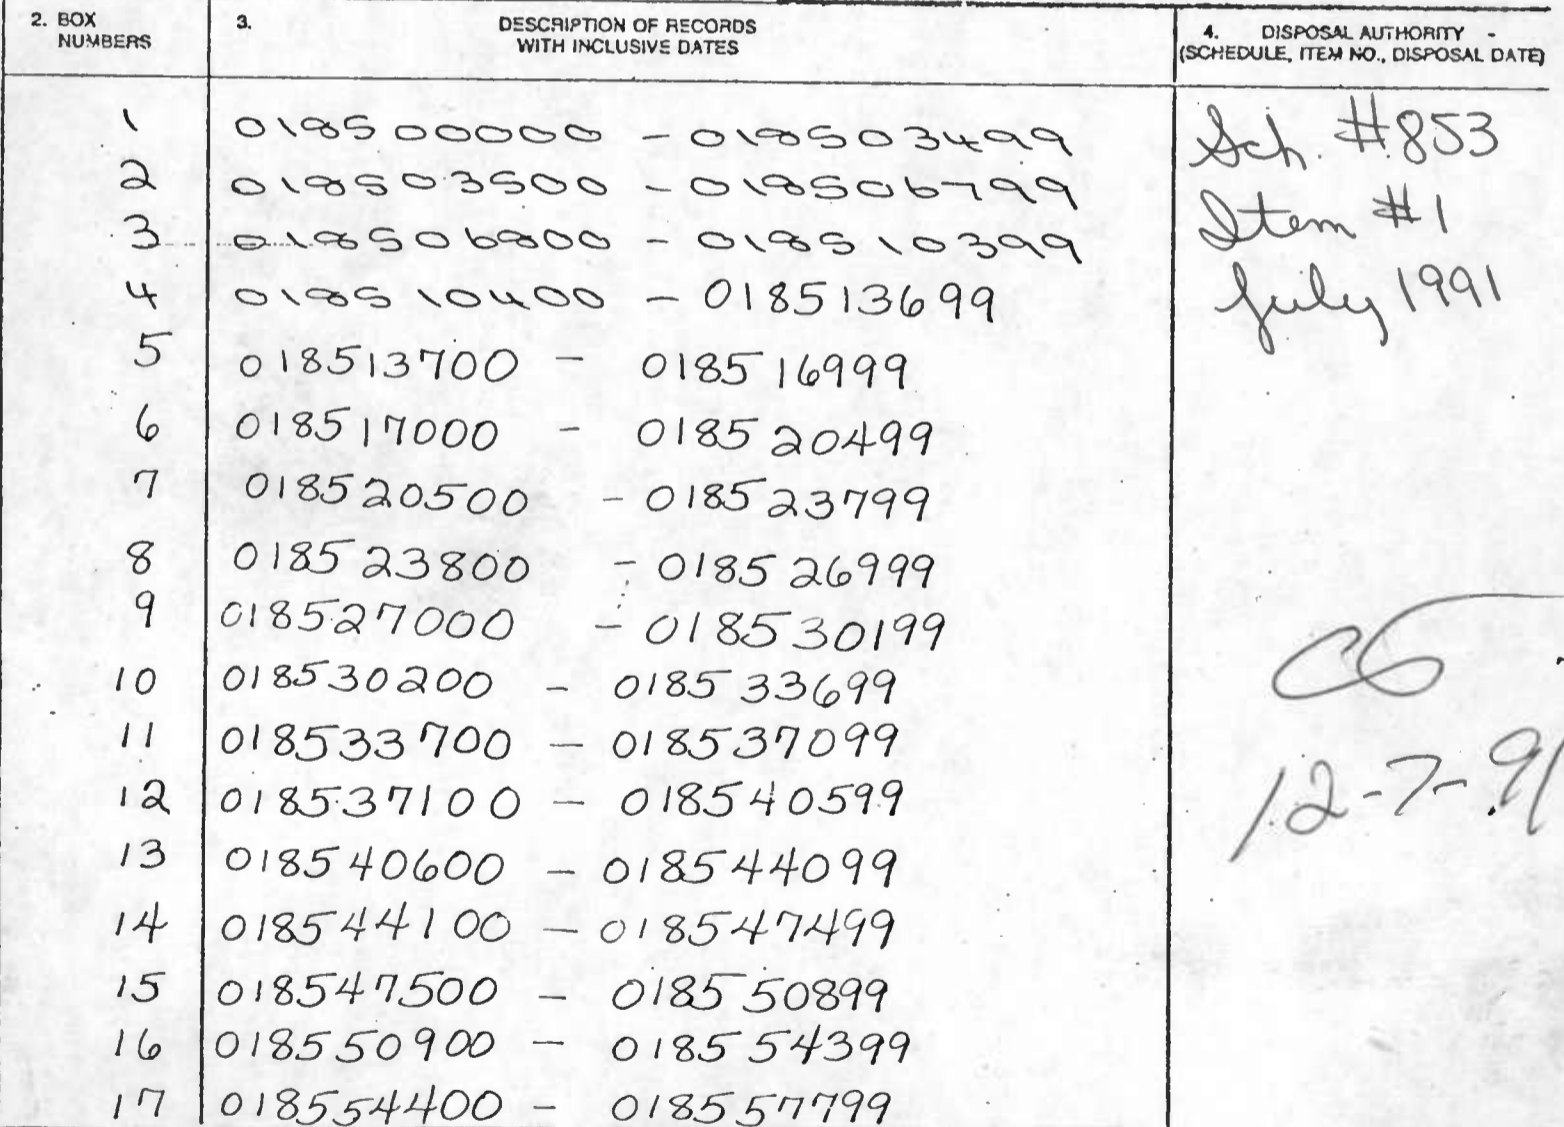 2. BOX NUMBERS 3. DESCRIPTION OF RECORDS WITH INCLUSIVE DATES 4. DISPOSAL AUTHORITY - (SCHEDULE, ITEM NO., DISPOSAL DATE)
1 018500000 - 018503499 Sch. #853
2 018503500 - 018506799 Item #1
3 018506800 - 018510399
4 018510400 - 018513699 July 1991
5 018513700 - 018516999
6 018517000 - 018520499
7 018520500 - 018523799
8 018523800 - 018526999
9 018527000 - 018530199
10 018530200 - 018533699 CG
11 018533700 - 018537099
12 018537100 - 018540599 12-7-91
13 018540600 - 018544099
14 018544100 - 018547499
15 018547500 - 018550899
16 018550900 - 018554399
17 018554400 - 018557799